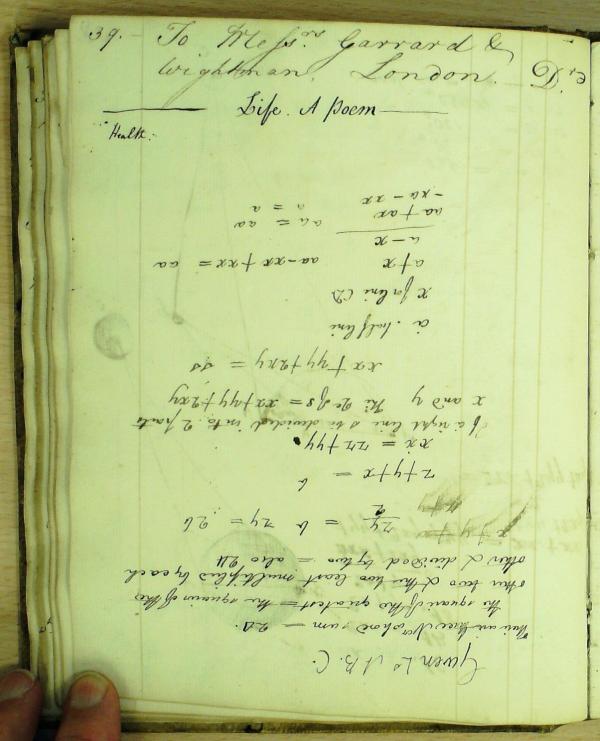 39. - To Mess.rs Garrard &
Wightman. London. D.rs
Life. A Poem
Health.
Given Ls A B. C.
There are three Nos whose sum = 24.
the square of the greatest = the squares of the
other two & the two least multiplied by each
other & divided by two = also 24
zy/2 = b zy = 2b
z + y + x = b
xx = zz + yy
If a right line s be divided into 2 parts
x and y The □ of s = xx + yy + 2xy
xx + yy + 2xy = ss
a . half line
x for line CD
a + x aa - xx + xx = aa
a - x
aa + ax aa = aa
- xa - xx a = a